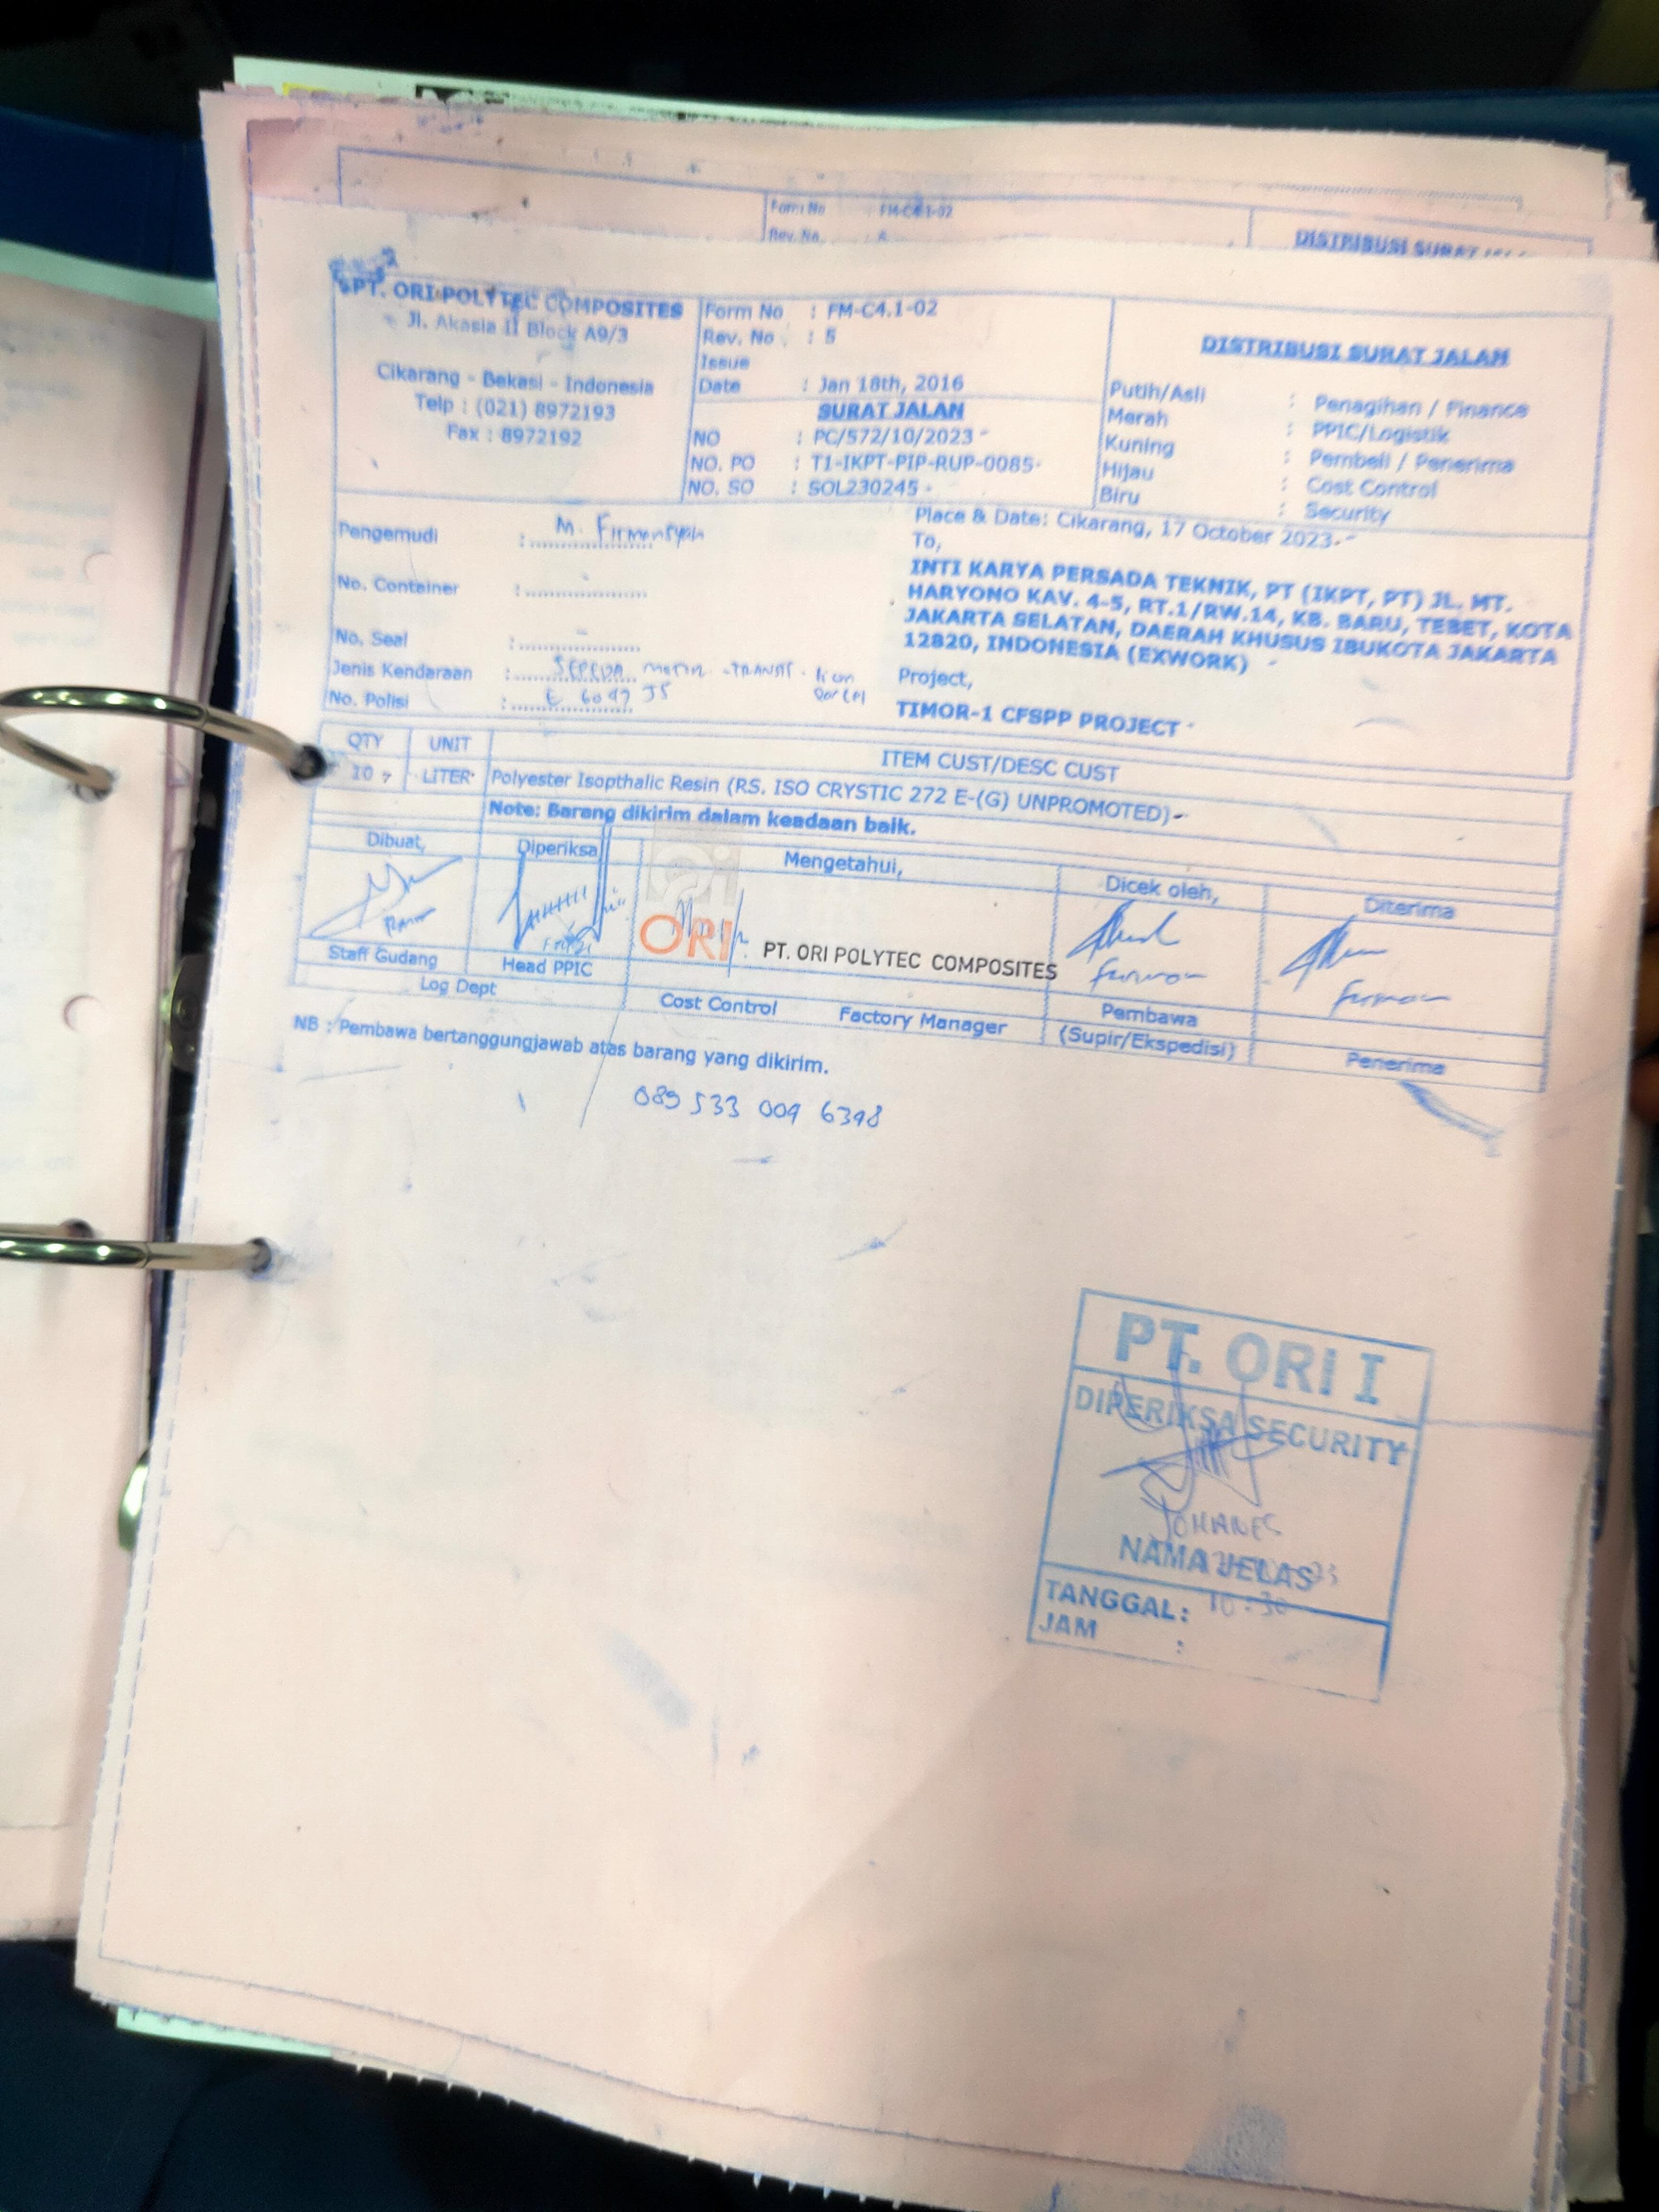 Form No : FM-C4.1-02
Rev. No : A
DISTRIBUSI SURAT
PT. ORI POLYTEC COMPOSITES
Jl. Akasia II Block A9/3
Cikarang - Bekasi - Indonesia
Telp : (021) 8972193
Fax : 8972192
Form No : FM-C4.1-02
Rev. No : 5
Issue
Date : Jan 18th, 2016
SURAT JALAN
NO : PC/572/10/2023
NO. PO : T1-IKPT-PIP-RUP-0085
NO. SO : SOL230245
DISTRIBUSI SURAT JALAN
Putih/Asli : Penagihan / Finance
Merah : PPIC/Logistik
Kuning : Pembeli / Penerima
Hijau : Cost Control
Biru : Security
Pengemudi : M. Firmansyah
No. Container :
No. Seal :
Jenis Kendaraan : SEPEDA MOTOR - TRANSIT - lion parcel
No. Polisi : E 6097 JS
Place & Date: Cikarang, 17 October 2023
To,
INTI KARYA PERSADA TEKNIK, PT (IKPT, PT) JL. MT.
HARYONO KAV. 4-5, RT.1/RW.14, KB. BARU, TEBET, KOTA
JAKARTA SELATAN, DAERAH KHUSUS IBUKOTA JAKARTA
12820, INDONESIA (EXWORK)
Project,
TIMOR-1 CFSPP PROJECT
QTY UNIT ITEM CUST/DESC CUST
10 LITER Polyester Isopthalic Resin (RS. ISO CRYSTIC 272 E-(G) UNPROMOTED)
Note: Barang dikirim dalam keadaan baik.
Dibuat, Diperiksa Mengetahui, Dicek oleh, Diterima
ORI PT. ORI POLYTEC COMPOSITES
Staff Gudang Head PPIC
Log Dept
Cost Control Factory Manager
Pembawa
(Supir/Ekspedisi)
Penerima
NB : Pembawa bertanggungjawab atas barang yang dikirim.
089 533 009 6398
PT. ORI I
DIPERIKSA SECURITY
YOHANES
NAMA JELAS
TANGGAL : 10:30
JAM :